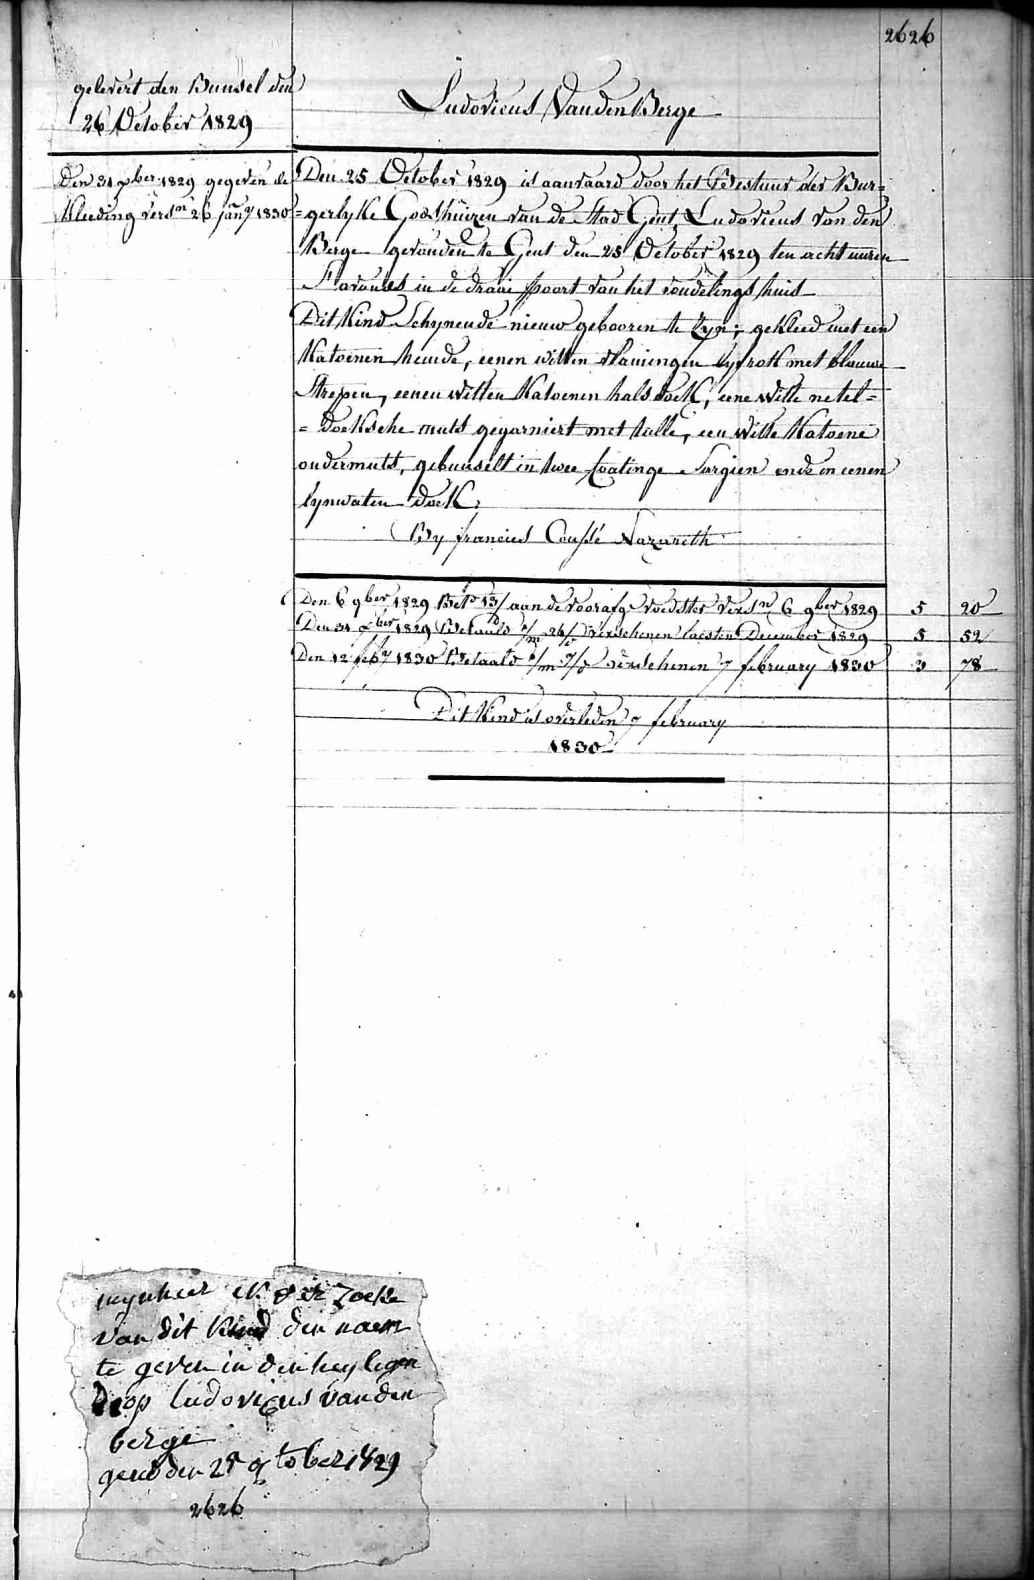 2626
gelevert den Bunsel den
26 October 1829
Ludovicus Vanden Berge
Den 31 xber 1829 gegeven de
kleeding versn 26 jany 1830
Den 25 October 1829 is aanvaard door het Bestuur der Bur=
=gerlyke Godshuizen van de Stad Gent Ludovicus van den
Berge gevonden te Gent den 25 October 1829 ten acht uuren
s'avonds in de draai poort van het vondelings huis
Dit kind Schynende nieuw gebooren te zyn; gekleed met een
katoenen hemde, eenen witten vlamingen lyfrok met blauwe
Strepen, eenen witten katoenen halsdoek, eene witte netel=
=doeksche muts gegarniert met tulle, een witte katoene
ondermuts, gebunselt in twee coatinge Sargien ende in eenen
lynwaten doek;
By francies Nazareth
Den 6 9ber 1829 Betd 13/ aan de voorafge voedster versn 6 9ber 1829 5 20
Den 31 xber 1829 Betaald p/m 26/c verschenen laesten December 1829 5 52
Den 12 feby 1830 Betaald p/m 7/c verschenen 7 february 1830 3 78
Dit kind is overleden 7 february
1830
mynheer ik ver zoeke
van dit kind den naem
te geven in den heyligen
doop ludovicus vanden
berge
gend den 25 octtober 1829
2626